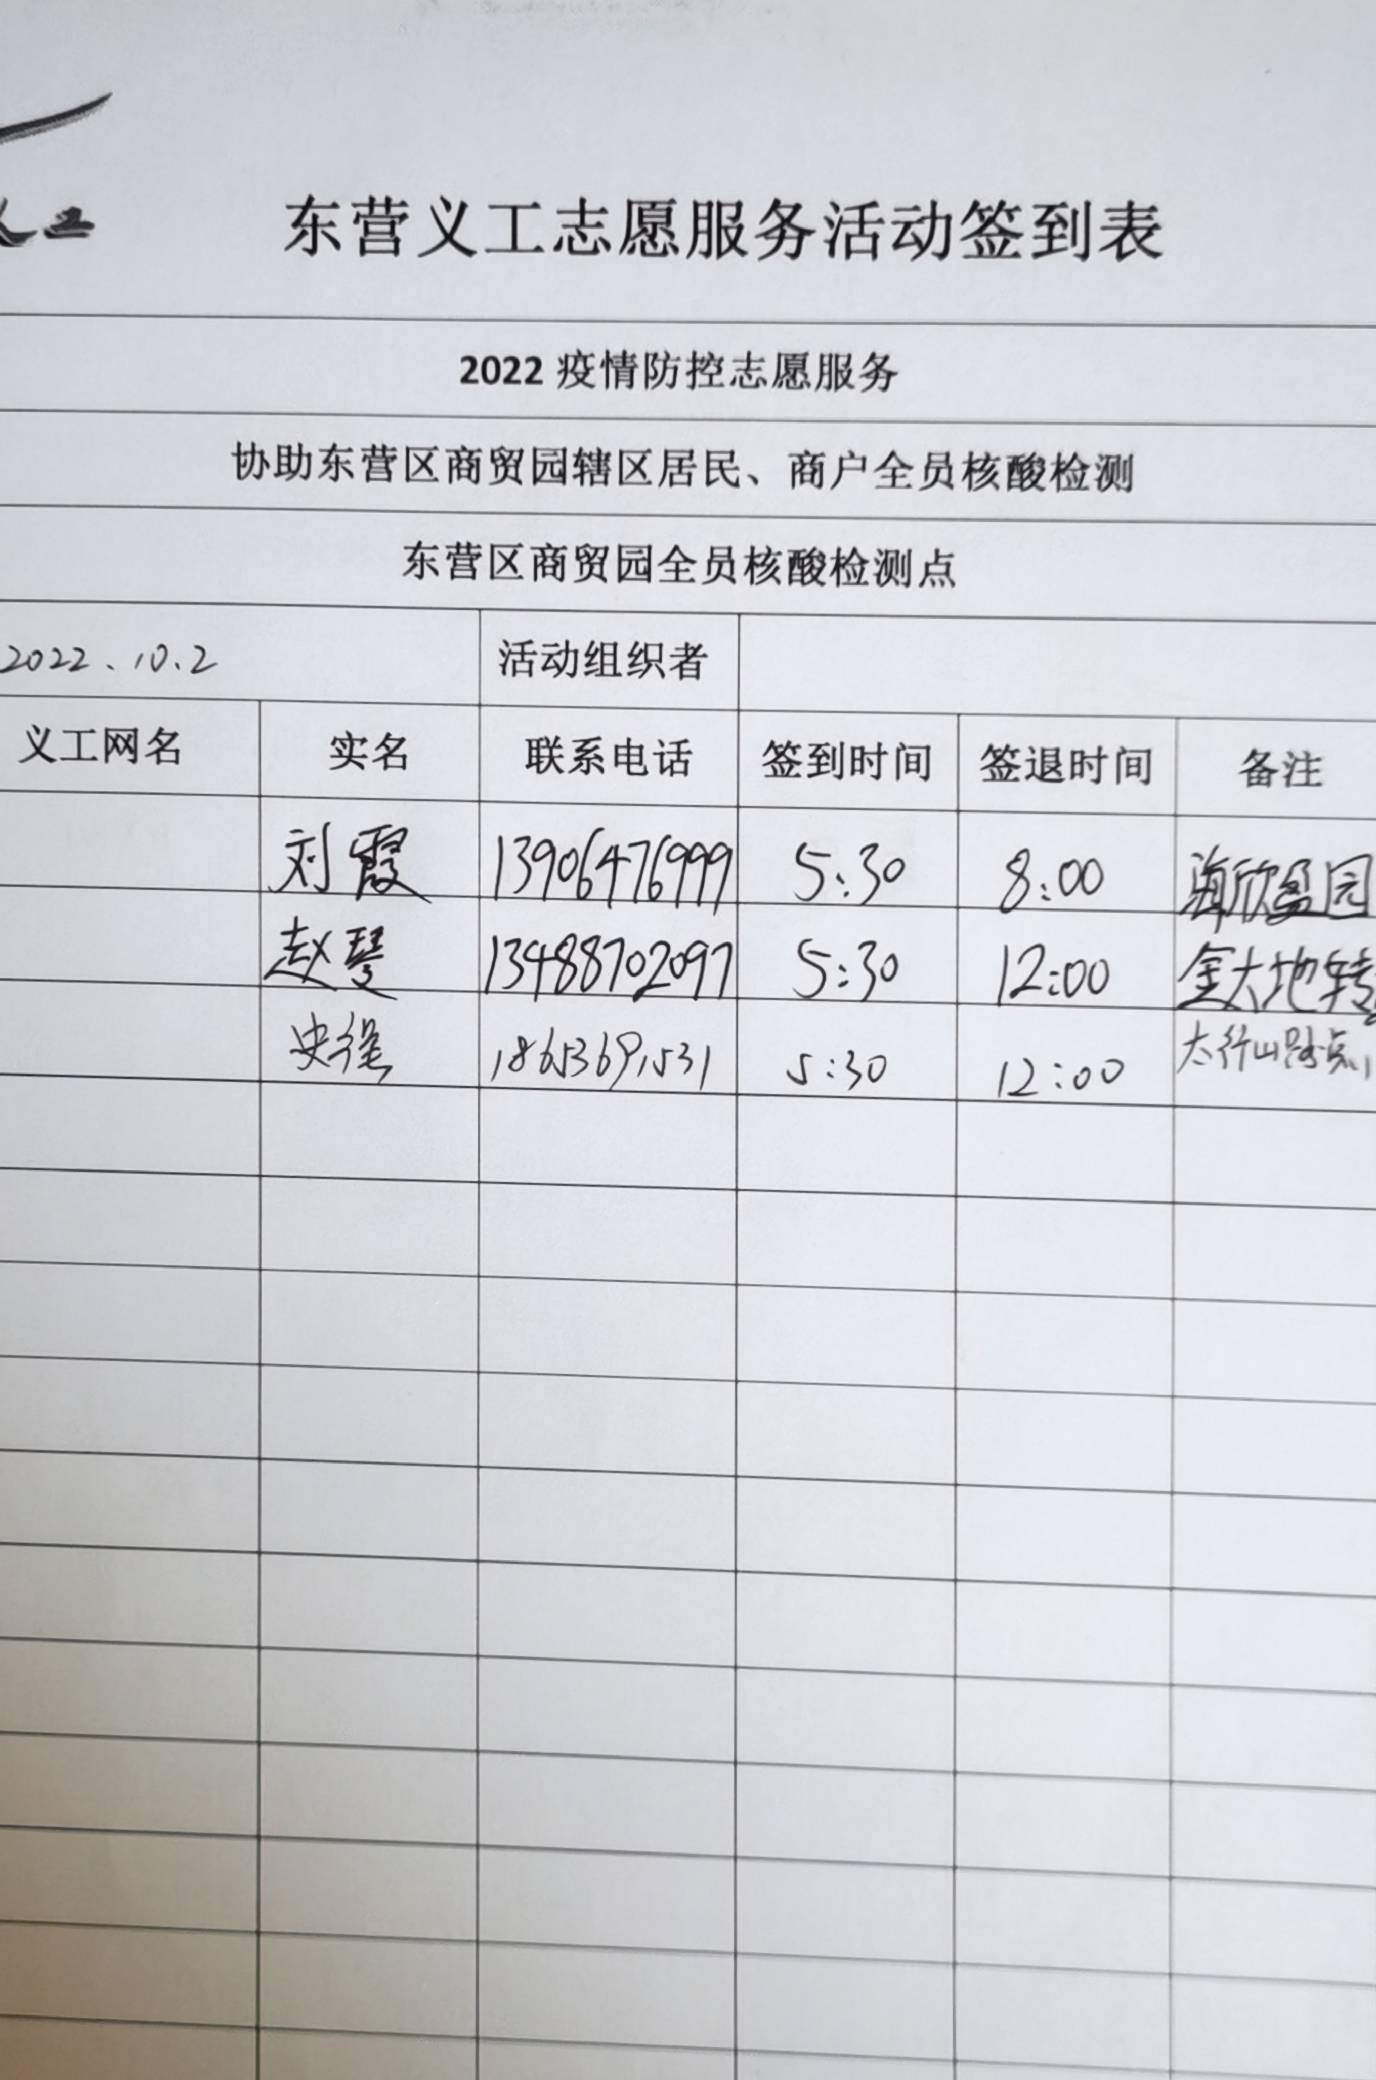 义工
东营义工志愿服务活动签到表
2022 疫情防控志愿服务
协助东营区商贸园辖区居民、商户全员核酸检测
东营区商贸园全员核酸检测点
2022.10.2 活动组织者
义工网名 实名 联系电话 签到时间 签退时间 备注
刘霞 13906476999 5:30 8:00 海欣园
赵琴 13488702097 5:30 12:00 金大地转
史 18653691531 5:30 12:00 太行山路点